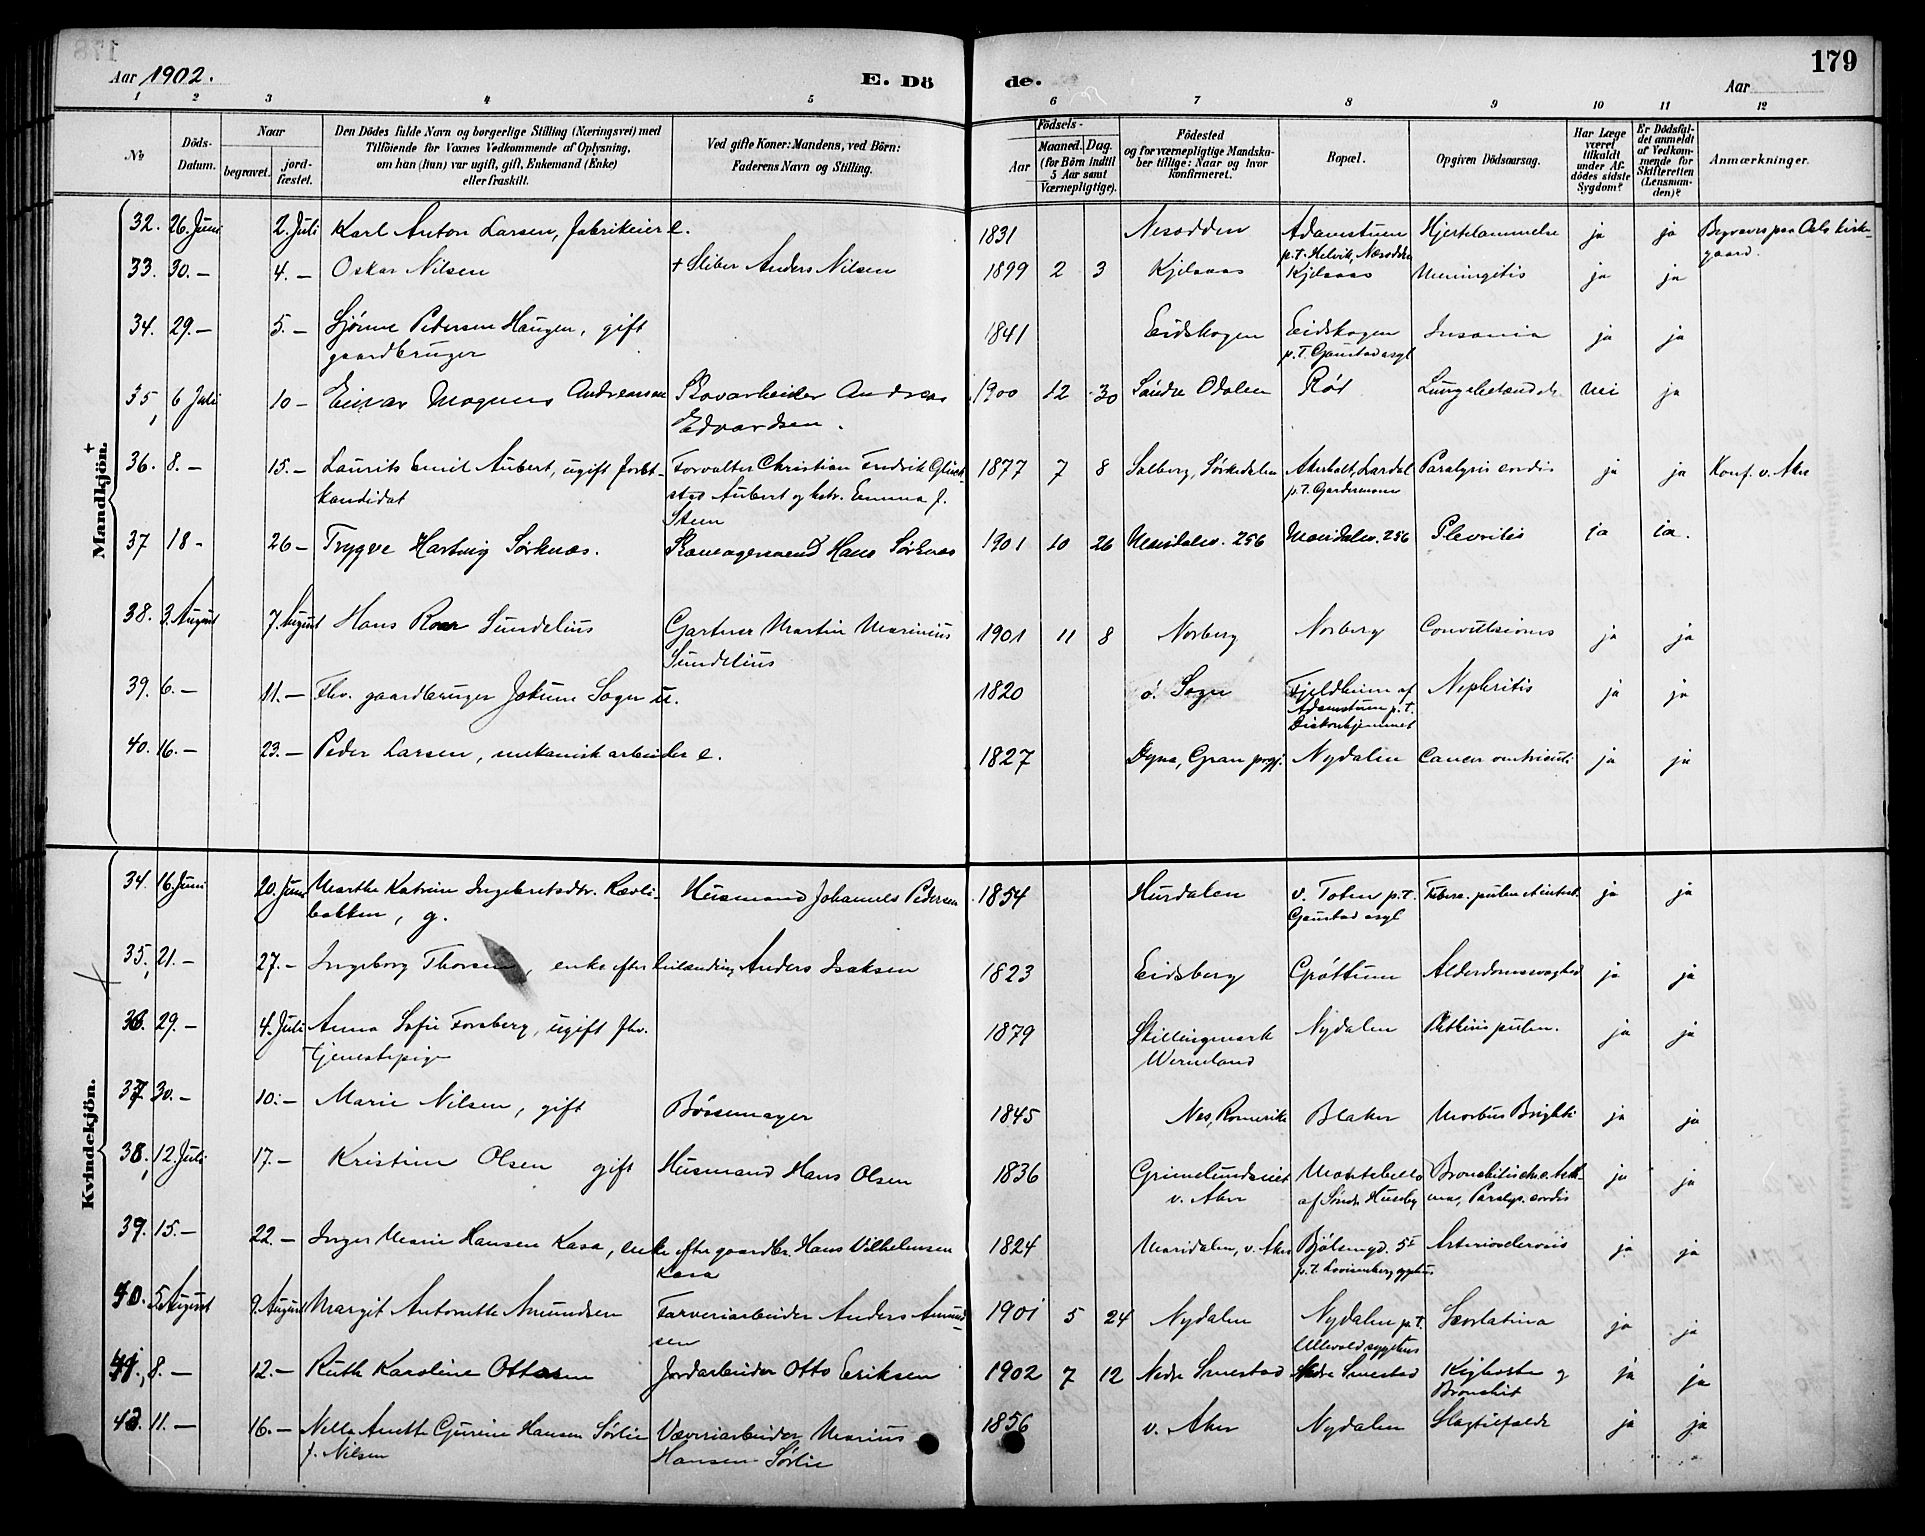 178
Aar 1902.
E. Dö
de.
179
Aar
1 2 3 4 5 6 7 8 9 10 11 12
No
Döds-Datum.
Naar
begravet.
jord-fæstet.
Den Dödes fulde Navn og borgerlige Stilling (Næringsvei) med
Tilföiende for Voxnes Vedkommende af Oplysning,
om han (hun) var ugift, gift, Enkemand (Enke)
eller fraskilt.
Ved gifte Koner: Mandens, ved Börn:
Faderens Navn og Stilling.
Födsels-
Aar
Maaned. Dag.
(for Börn indtil
5 Aar samt
Værnepligtige).
Födested
og for værnepligtige Mandska-
ber tillige: Naar og hvor
konfirmeret.
Bopæl.
Opgiven Dödsaarsag.
Har Læge
været
tilkaldt
under Af-
dödes sidste
Sygdom?
Er Dödsfal-
det anmeldt
af Vedkom-
mende for
Skifteretten
(Lensman-
den)?
Anmærkninger.
Mandkjön.
32. 26. Juni 2. Juli Karl Anton Larsen, fabrikeier e. 1831 Nesodden Adamstuen Hjertelammelse ja ja Begraves paa Oslo kirke-
p.t. Helvik, Næsodden gaard.
33. 30. — 4. — Oskar Nilsen + Sliber Anders Nilsen 1899 2 3 Kjelsaas Kjelsaas Meningitis ja ja
34. 29. — 5. — Pedersen Haugen, gift 1841 Eidskogen Eidskogen Insania ja ja
gaardbruger p.T. Gaustad asyl
35, 6 Juli 10 — Einar Magnus Andreassen Skovarbeider Andreas 1900 12 30 Söndre Odalen Röd nei ja
Edvardsen.
36. 8. — 15. — Laurits Emil Aubert, ugift forst- Forvalter Christian Fredrik Glück- 1877 7 8 Solberg, Sörkedalen Lardal Paralysis cordis ja ja Konf. v. Aker
kandidat stad Aubert og hstr. Emma f. p.t. Gardermoen
Steen
37 18 — 26 — Trygve Hartvig Sørknæs. Hans Sørknæs 1901 10 26 Maridalsv. 256 Maridalsv. 256 Plevritis ja ja.
38. 3. August 7. August Hans Roar Sundelius Gartner Martin Marinius 1901 11 8 Norberg Norberg Convulsiones ja ja
Sundelius
39. 6. — 11. — Fhv. gaardbruger Jokum Sogn u. 1820 ö. Sogn Fjeldheim af Nephritis ja ja
Adamstuen p.t.
Diakonhjemmet
40. 16. — 23. — Peder Larsen, mekanisk arbeider e. 1827 Dyna, Gran prgj. Nydalen Cancer ventriculi ja ja
Kvindekjön.
34. 16. Juni 20. Juni Marthe Katrine Ingebretsdtr. Rævli- Husmand Johannes Pedersen 1854 Hurdalen v. Toten p.t. ja ja
bakken, g. Gaustad asyl
35, 21. — 27. — Ingeborg Thorsen, enke efter Anders Isaksen 1823 Eidsberg Gröttum Alderdomssvaghed ja ja
36. 29. — 4. Juli Anna Sofie Forsberg, ugift fhv. 1879 Skillingmark Nydalen Phthisis pulm. ja ja
tjenestepige Wermland
37 30. — 10. — Marie Nilsen, gift Bössemager 1845 Nes, Romerike Blaker Morbus Brightii ja ja
38, 12. Juli 17. — Kristine Olsen gift Husmand Hans Olsen 1836 Grimelundseiet Montebello Bronchitis chr. Asth- ja ja
v. Aker af Söndr. Huseby ma, Paralys. cordis
39. 15. — 22. — Inger Marie Hansen Kasa, enke efter gaardbr. Hans Vilhelmsen 1824 Maridalen, v. Aker Bjölsengd. 5 I Arteriosclerosis ja ja
Kasa p.t. Lovisenberg sygehus
40. 5. August 9. August Margit Antonette Amundsen Farveriarbeider Anders Amund- 1901 5 24 Nydalen Nydalen p.t. Scarlatina ja ja
sen Ullevold sygehus
41, 8. — 12. — Ruth Karoline Ottosen Jordarbeider Otto Eriksen 1902 7 12 Nedre Smestad Nedre Smestad Kighoste og ja ja
Bronchit
42. 11. — 16. — Nella Anette Gurine Hansen Sørlie Væveriarbeider Marius 1856 v. Aker Nydalen Slagtilfælde ja ja
f. Nilsen Hansen Sørlie